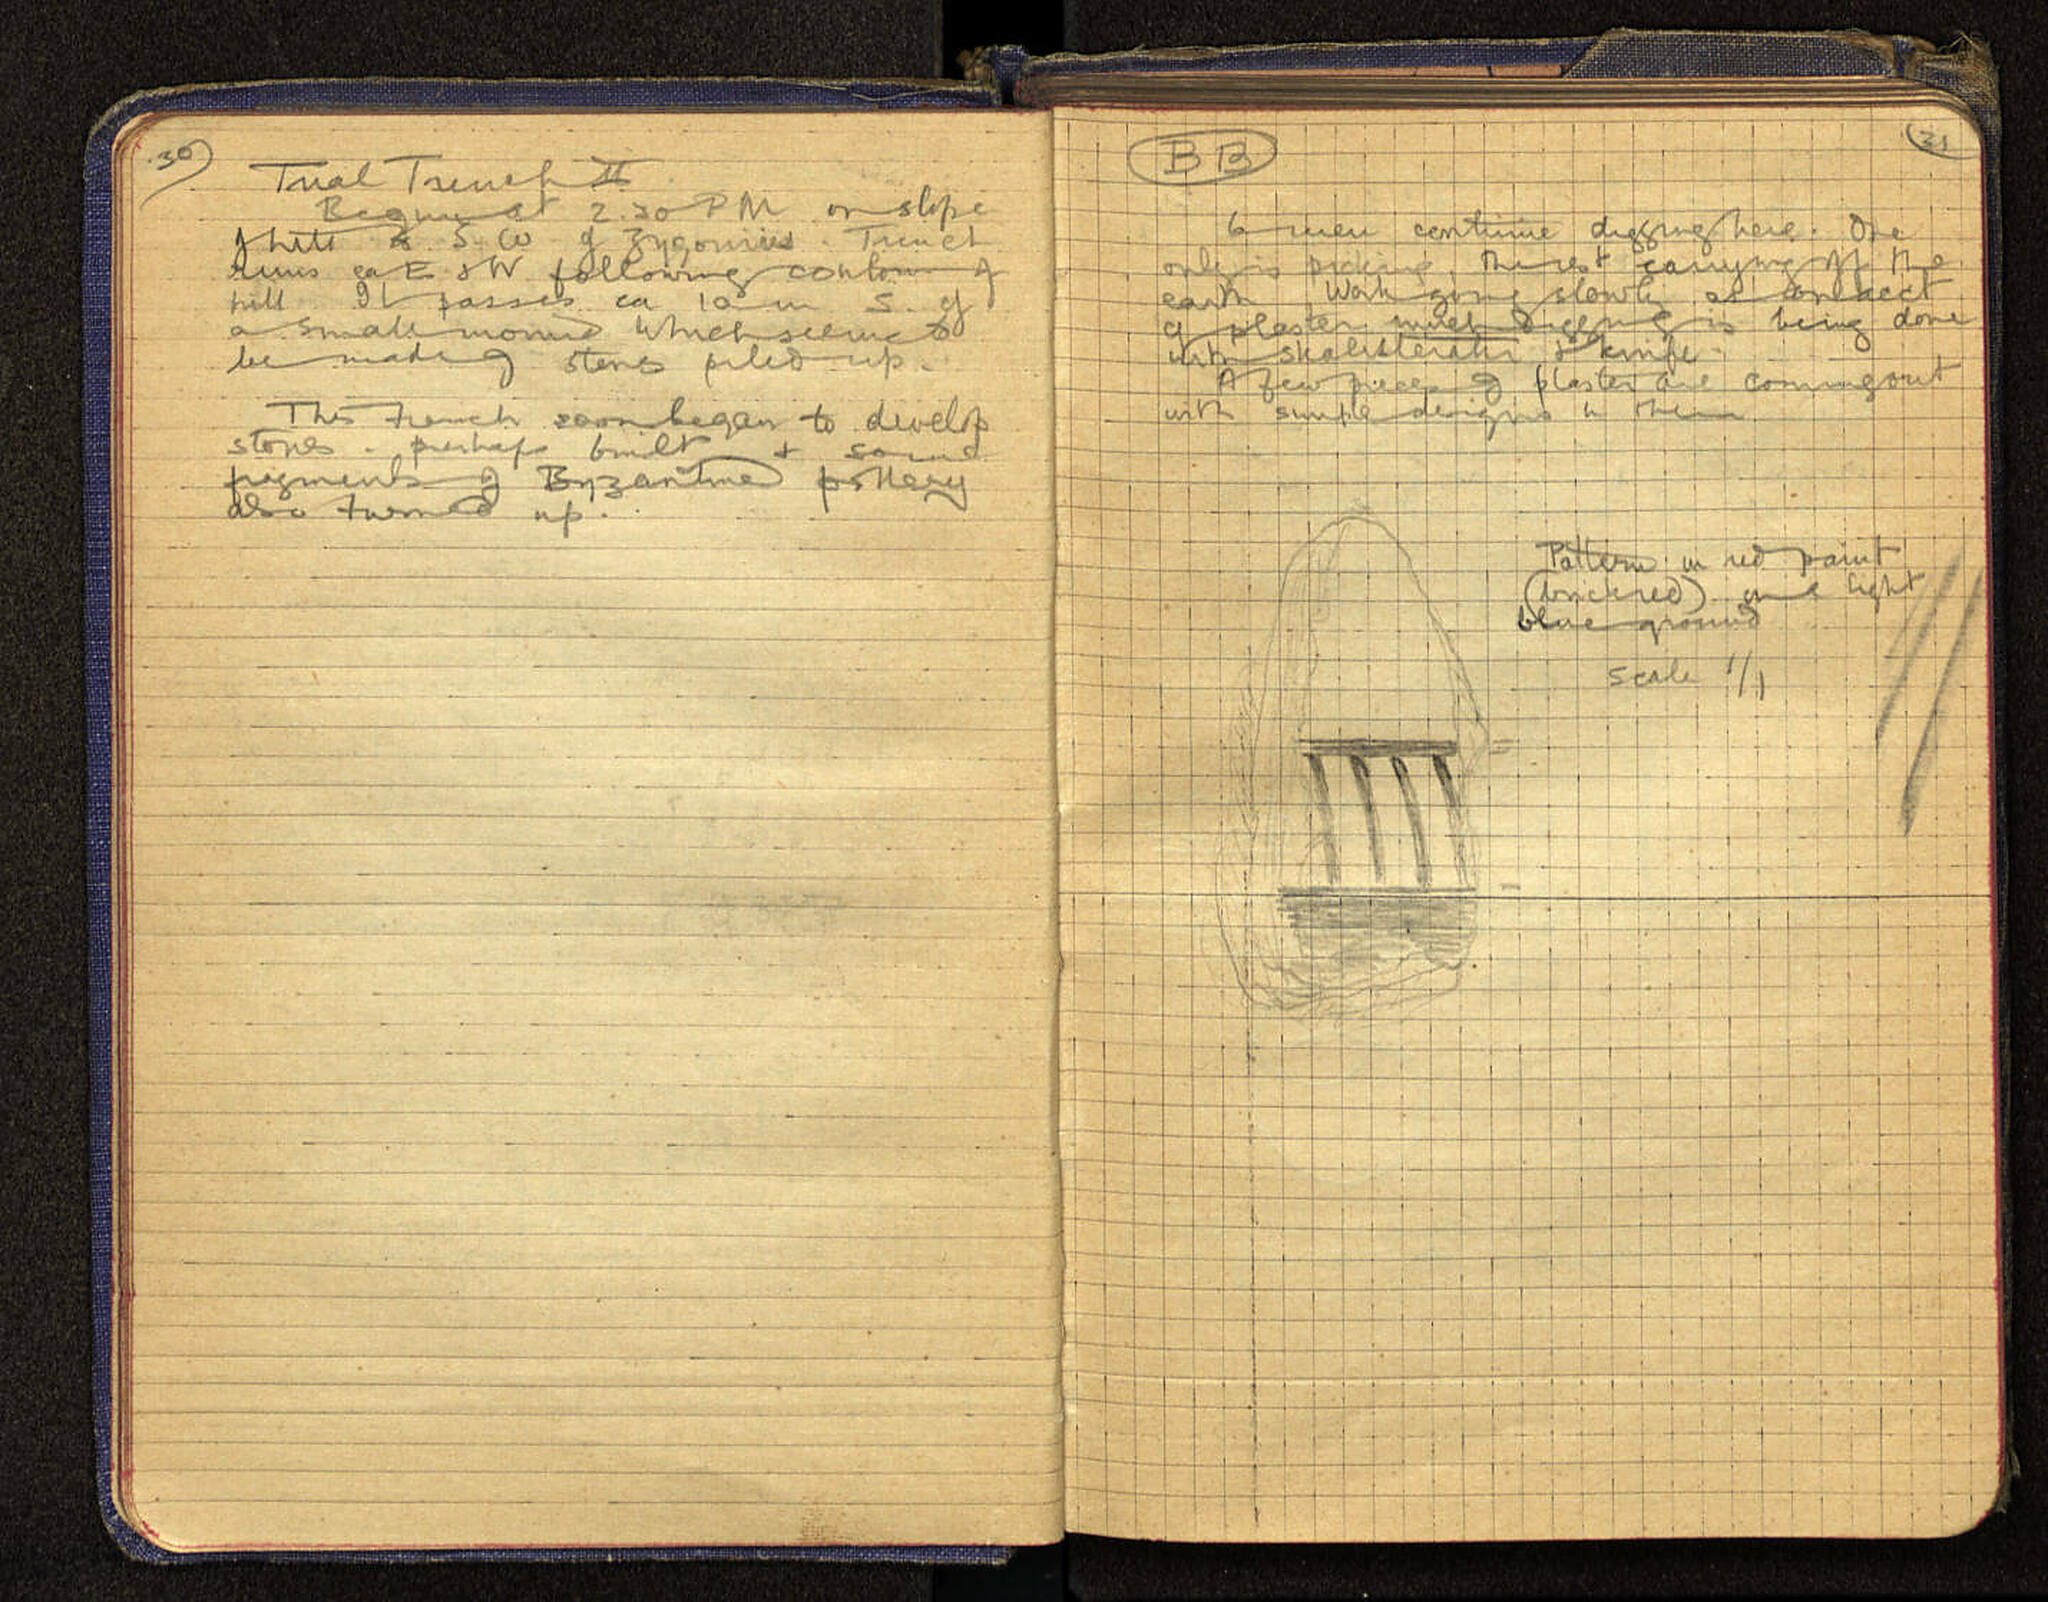 30
Trial Trench II
Begun at 2.30 PM on slope
of hill to S.W of Zygouries. Trench
runs ca E & W following contour of
hill. It passes ca 10 m S. of
a small mound which seems to
be made of stones piled up.
This trench soon began to develop
stones - perhaps built & some
fragments of Byzantine pottery
also turned up.
BB
31
6 men continue digging here. One
only is picking, the rest carrying off the
earth. Work going slowly as on acct
of plaster much digging is being done
with skalisteraki & knife.
A few pieces of plaster are coming out
with simple designs on them
Pattern in red paint
(brick red) on a light
blue ground
Scale 1/1